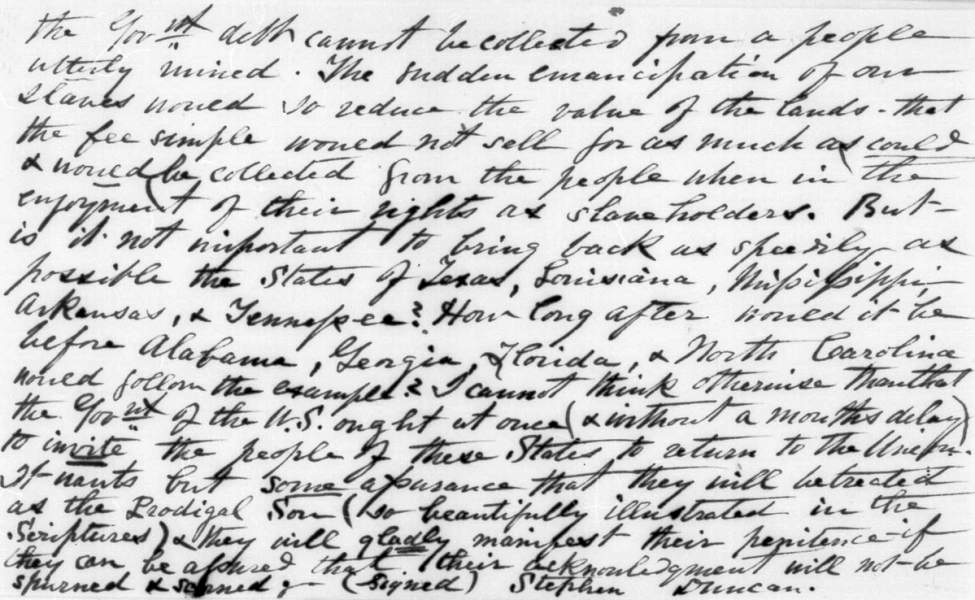 the Govnt debt cannot be collected from a people
utterly ruined. The sudden emancipation of our
slaves would so reduce the value of the lands - that
the fee simple would not sell for as much as could
& would be collected from the people when in the
enjoyment of their rights as slave holders. But -
is it not important to bring back as speedily as
possible the States of Texas, Louisiana, Missisippi,
Arkansas, & Tennessee? How long after would it be
before Alabama, Georgia, Florida, & North Carolina
would follow the example? I cannot think otherwise than that
the Govnt of the U.S. ought at once (& without a months delay)
to invite the people of these States to return to the Union.
It wants but some assurance that they will be treated
as the Prodigal Son (so beautifully illustrated in the
Scriptures) & they will gladly manifest their penitence - if
they can be assured that their acknowledgment will not be
spurned & scorned - (signed) Stephen Duncan.